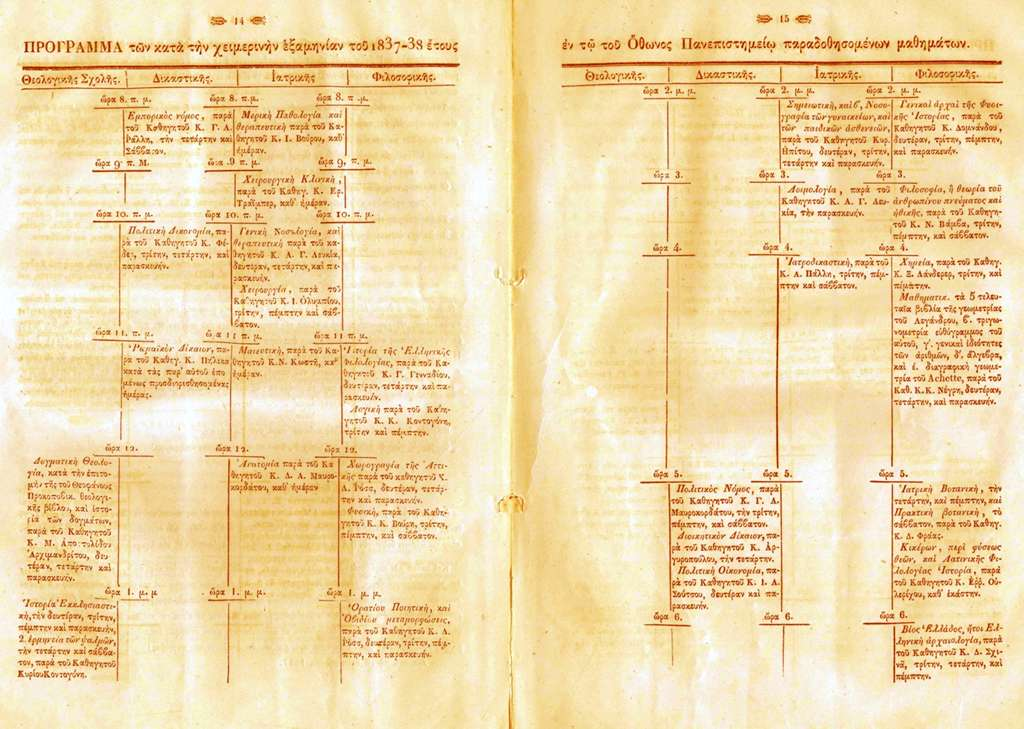 14
ΠΡΟΓΡΑΜΜΑ τῶν κατὰ τὴν χειμερινὴν ἑξαμηνίαν τοῦ 1837-38 ἔτους
Θεολογικῆς Σχολῆς. Δικαστικῆς. Ἰατρικῆς Φιλοσοφικῆς.
ὥρα 8. π. μ. ὥρα 8. π.μ. ὥρα 8. π.μ.
Ἐμπορικὸς νόμος, παρὰ
τοῦ Καθηγητοῦ Κ. Γ. Α.
Ράλλη, τὴν τετάρτην καὶ
Σάββατον.
Μερικὴ Παθολογία καὶ
θεραπευτικὴ παρὰ τοῦ Κα-
θηγητοῦ Κ. Ι. Βούρου, καθ'
ἡμέραν.
ὥρα 9 π. Μ. ὥρα 9 π. μ. ὥρα 9. π. μ.
Χειρουργικὴ Κλινικὴ,
παρὰ τοῦ Καθηγ. Κ. Ερ.
Τράϊμπερ, καθ' ἡμέραν.
ὥρα 10. π. μ. ὥρα 10. π. μ. ὥρα 10. π. μ.
Πολιτικὴ Δικονομία, πα-
ρὰ τοῦ Καθηγητοῦ Κ. Φέ-
δερ, τρίτην, τετάρτην, καὶ
παρασκευήν.
Γενικὴ Νοσολογία, καὶ
θεραπευτικὴ παρὰ τοῦ κα-
θηγητοῦ Κ. Α. Γ. Λευκία,
δευτέραν, τετάρτην, καὶ πα-
ρασκευήν.
Χειρουργία, παρὰ τοῦ
Καθηγητοῦ Κ. Ι. Ολυμπίου,
τρίτην, πέμπτην καὶ σάβ-
βατον.
ὥρα 11. π. μ. ὥρα 11 π. μ. ὥρα 11 π. μ.
Ῥωμαϊκὸν Δίκαιον, πα-
ρὰ τοῦ Καθηγ. Κ. Πήλικα
κατὰ τὰς παρ' αὐτοῦ ἑπο-
μένως προσδιορισθησομένας
ἡμέρας.
Μαιευτικὴ, παρὰ τοῦ Κα-
θηγητοῦ Κ.Ν. Κωστῆ, καθ'
ἡμέραν.
Ἱστορία τῆς Ἑλληνικῆς
Φιλολογίας, παρὰ τοῦ Κα-
θηγητοῦ Κ. Γ. Γενναδίου,
δευτέραν, τετάρτην καὶ πα-
ρασκευήν.
Λογικὴ παρὰ τοῦ Καθη-
γητοῦ Κ. Κ. Κοντογόνη,
τρίτην καὶ πέμπτην.
ὥρα 12. ὥρα 12. ὥρα 12.
Δογματικὴ Θεολο-
γία, κατὰ τὴν ἐπιτο-
μὴν τῆς τοῦ Θεοφάνους
Προκοποβικ. θεολογι-
κῆς βίβλου, καὶ ἱστο-
ρία τῶν δογμάτων,
παρὰ τοῦ Καθηγητοῦ
Κ. Μ. Αποστολίδου
Ἀρχιμανδρίτου, δευ-
τέραν, τετάρτην καὶ
παρασκευήν.
Ἀνατομία παρὰ τοῦ Κα-
θηγητοῦ Κ. Δ. Α. Μαυρο-
κορδάτου, καθ' ἡμέραν
Χωρογραφία τῆς Ἀττι-
κῆς παρὰ τοῦ καθηγητοῦ Κ.
Λ. Ρόσς, δευτέραν, τετάρ-
την, καὶ παρασκευήν.
Φυσικὴ, παρὰ τοῦ Καθη-
γητοῦ Κ. Κ. Βούρη, τρίτην,
πέμπτην, καὶ σάββατον.
ὥρα 1. μ. μ ὥρα 1. μ. μ. ὥρα 1. μ. μ.
Ἱστορία Ἐκκλησιαστι-
κή, τὴν δευτέραν, τρίτην,
πέμπτην καὶ παρασκευήν,
2. ἑρμηνεία τῶν ψαλμῶν,
τὴν τετάρτην καὶ σάββα-
τον, παρὰ τοῦ Καθηγητοῦ
Κυρίου Κοντογόνη.
Ὁρατίου Ποιητικὴ, καὶ
Ὀβιδίου μεταμορφώσεις,
παρὰ τοῦ Καθηγητοῦ Κ. Λ.
Ρόσς, δευτέραν, τρίτην, πέμ-
πτην, καὶ παρασκευήν.
15
ἐν τῷ τοῦ Ὄθωνος Πανεπιστημείῳ παραδοθησομένων μαθημάτων.
Θεολογικῆς. Δικαστικῆς. Ἰατρικῆς. Φιλοσοφικῆς.
ὥρα 2. μ. μ. ὥρα 2. μ. μ. ὥρα 2. μ. μ.
Σημειωτικὴ, καὶ β', Νοσο-
γραφία τῶν γυναικείων, καὶ
τῶν παιδικῶν ἀσθενειῶν,
παρὰ τοῦ Καθηγητοῦ Κυρ.
Ηπίτου, δευτέραν, τρίτην,
τετάρτην καὶ παρασκευήν.
Γενικαὶ ἀρχαὶ τῆς Φυσι-
κῆς Ἱστορίας, παρὰ τοῦ
Καθηγητοῦ Κ. Δομνάνδου,
δευτέραν, τρίτην, πέμπτην,
καὶ παρασκευήν.
ὥρα 3. ὥρα 3. ὥρα 3.
Λοιμολογία, παρὰ τοῦ
Καθηγητοῦ Κ. Α. Γ. Λευ-
κία, τὴν παρασκευήν.
Φιλοσοφία, ἡ θεωρία τοῦ
ἀνθρωπίνου πνεύματος καὶ
ἠθικῆς, παρὰ τοῦ Καθηγη-
τοῦ Κ. Ν. Βάμβα, τρίτην,
πέμπτην, καὶ σάββατον.
ὥρα 4. ὥρα 4. ὥρα 4.
Ἰατροδικαστικὴ, παρὰ τοῦ
Κ. Α. Πάλλη, τρίτην, πέμ-
πτην καὶ σάββατον.
Χημεία, παρὰ τοῦ Καθηγ.
Κ. Ξ. Λάνδερερ, τρίτην, καὶ
πέμπτην.
Μαθηματικ. τὰ 5 τελευ-
ταῖα βιβλία τῆς γεωμετρίας
τοῦ Λεγάνδρου, β'. τριγω-
νομετρία εὐθύγραμμος τοῦ
αὐτοῦ, γ'. γενικαὶ ἰδιότητες
τῶν ἀριθμῶν, δ'. ἄλγεβρα,
καὶ έ. διαγραφικὴ γεωμε-
τρία τοῦ Achette, παρὰ τοῦ
Καθ. Κ.Κ. Νέγρη, δευτέραν,
τετάρτην, καὶ παρασκευήν.
ὥρα 5. ὥρα 5. ὥρα 5.
Πολιτικὸς Νόμος, παρὰ
τοῦ Καθηγητοῦ Κ. Γ. Α.
Μαυροκορδάτου, τὴν τρίτην,
πέμπτην, καὶ σάββατον.
Διοικητικὸν Δίκαιον, πα-
ρὰ τοῦ Καθηγητοῦ Κ. Αρ-
γυροπούλου, τὴν τετάρτην.
Πολιτικὴ Οἰκονομία, πα-
ρὰ τοῦ Καθηγητοῦ Κ. Ι. Α.
Σούτσου, δευτέραν καὶ πα-
ρασκευήν.
Ἰατρικὴ Βοτανικὴ, τὴν
τετάρτην, καὶ πέμπτην, καὶ
Πρακτικὴ βοτανικὴ, τὸ
σάββατον, παρὰ τοῦ Καθηγ.
Κ. Δ. Φράας.
Κικέρων, περὶ φύσεως
θεῶν, καὶ Λατινικῆς Φι-
λολογίας Ἱστορία, παρὰ
τοῦ Καθηγητοῦ Κ. Ερρ. Οὐ-
λερίχου, καθ' ἑκάστην.
ὥρα 6. ὥρα 6. ὥρα 6.
Βίος Ἑλλάδος, ἤτοι Ἑλ-
ληνικὴ ἀρχαιολογία, παρὰ
τοῦ Καθηγητοῦ Κ. Δ. Σχι-
νᾶ, τρίτην, τετάρτην, καὶ
πέμπτην.